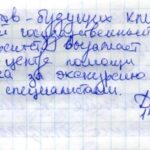 тов-будущих кли
й государственност
рситет выражает
центр помощи
га за экскурсию
специалистам.